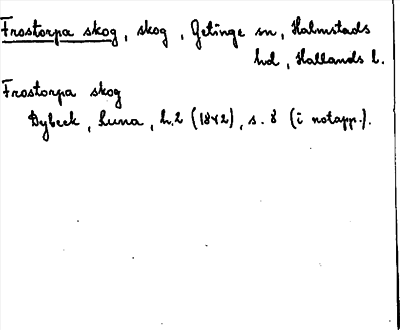 Frostorpa skog, skog, Getinge sn, Halmstads
hd, Hallands l.
Frostorpa skog
Dybeck, Runa, h.2 (1842), s. 8 (i notapp.).